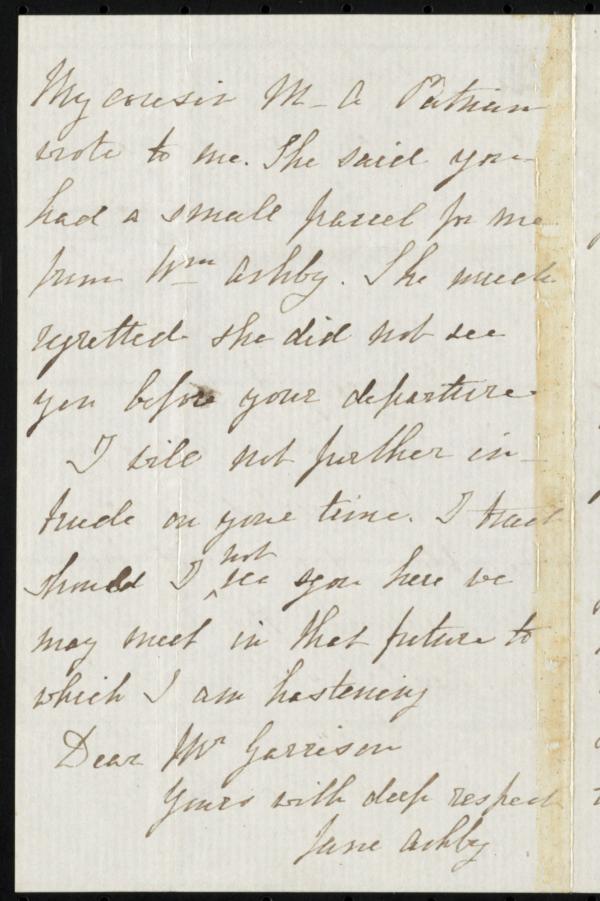 My cousin M. A. Putnam
wrote to me. She said you
had a small parcel for me
from Wm Ashby. She much
regretted she did not see
you before your departure
I will not further in-
trude on your time. I trust
should I not see you here we
may meet in that future to
which I am hastening
Dear Mr Garrison
Yours with deep respect
Jane Ashby